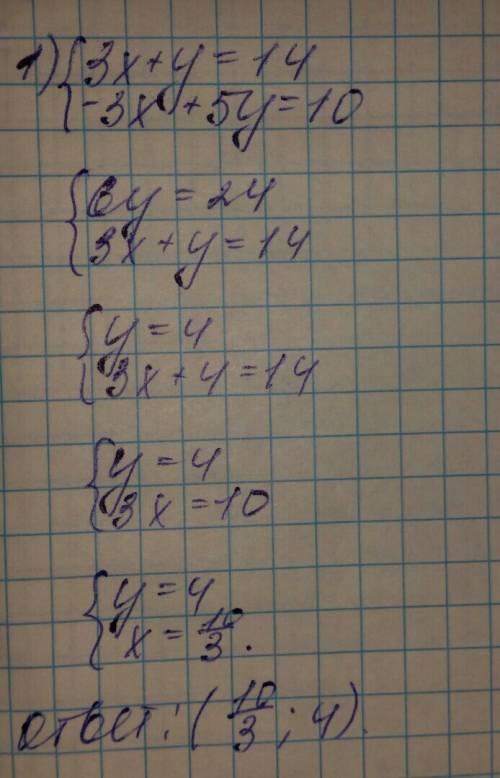 1) { 3x + y = 14
-3x + 5y = 10
{ 6y = 24
3x + y = 14
{ y = 4
3x + 4 = 14
{ y = 4
3x = 10
{ y = 4
x = 10/3.
ответ: (10/3; 4).